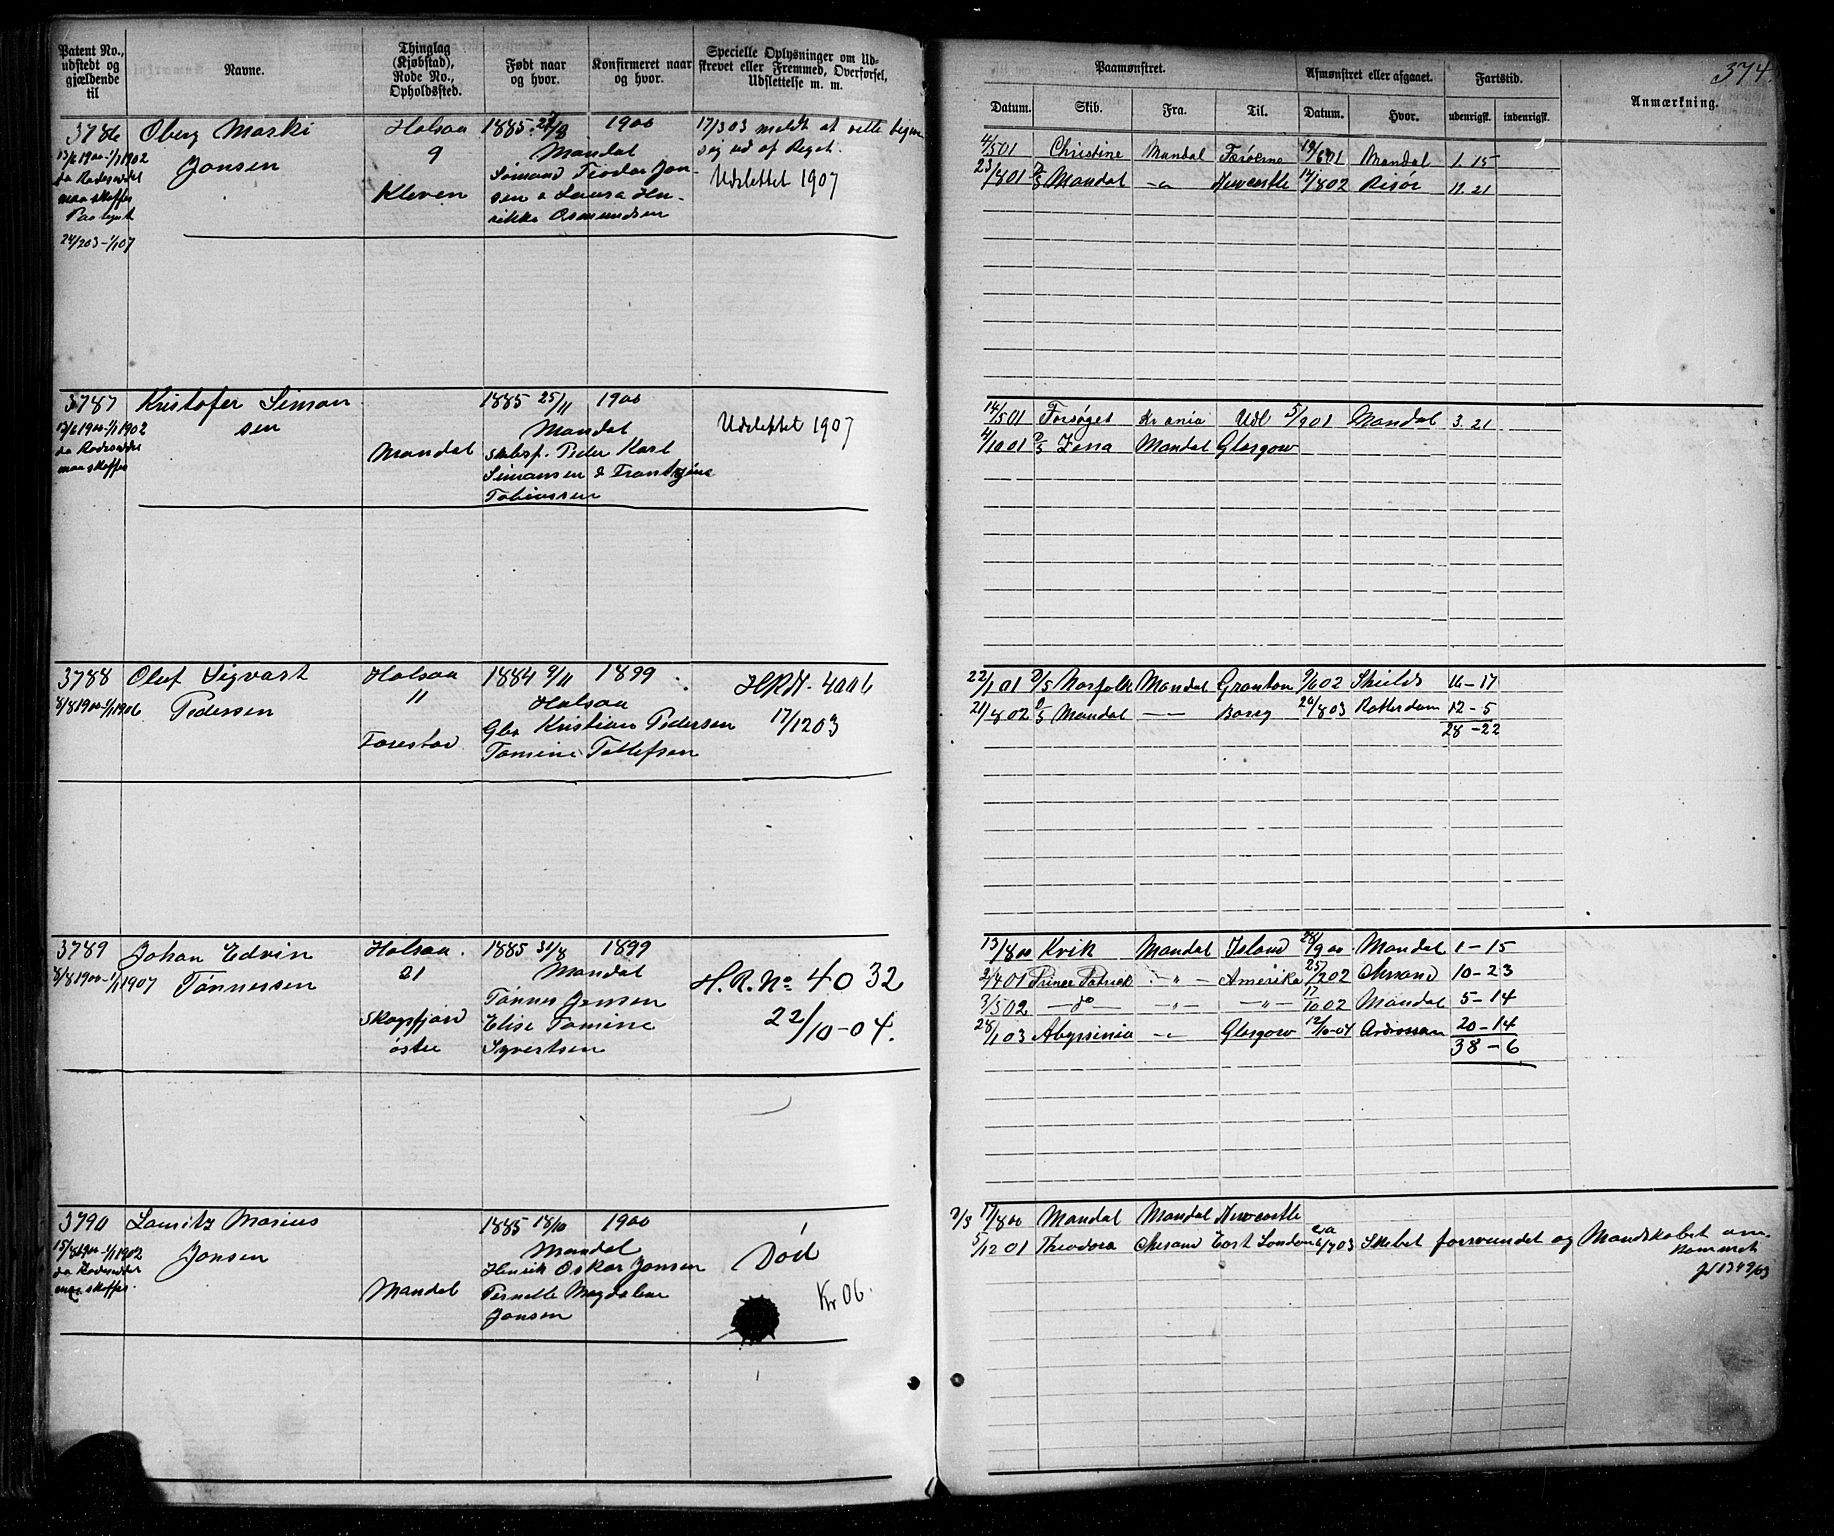 374.
Patent No., udstedt og gjældende til
Navne.
Thinglag (Kjøbstad), Rode No., Opholdssted.
Født naar og hvor.
Konfirmeret naar og hvor.
Specielle Oplysninger om Udskrevet eller Fremmed, Overførsel, Udslettelse m. m.
Paamønstret.
Datum. Skib. Fra. Til.
Afmønstret eller afgaaet.
Datum. Hvor.
Fartstid.
udenrigsk. indenrigsk.
Anmærkning.
3786 Oberg Marki Halsaa 1885 1900 17/3 03 meldt at ville begive
13/6 1900-1/1 1902 Jonsen 9 Mandal sig ud af Riget.
da Rodeseddel Sømand Teodor Jon- Udslettet 1907
maa skaffes Kleven sen & Laura Hen-
Paategnt rikke Osmundsen
24/2 03-1/1 07
4/5 01 Christine Mandal Færøerne 19/6 01 Mandal 1. 15
23/8 01 Mandal -"- Newcastle 14/8 02 Risør 11. 21
3787 Kristofer Simon 1885 25/11 1900
13/6 1900-1/1 1902 sen Mandal Udslettet 1907
da Rodeseddel Mandal skibsf. Peder Karl
maa skaffes Simonsen &
Tobiassen
14/5 01 Forsøget Kr ania Udl 5/9 01 Mandal 3. 21
4/10 01 Zena Mandal Glasgow
3788 Oluf Sigvart Halsaa 1884 9/11 1899 H.R.N. 4006
8/8 1900-1/1 1906 Pedersen 11 Halsaa 17/12 03
Gbr Kristian Pedersen
Farestad Tomine Tollefsen
22/1 01 Norfolk Mandal Granton 9/6 02 Shields 16-17
21/8 02 Mandal -"- Barry 20/8 03 Rotterdam 12-5
28-22
3789 Johan Edvin Halsaa. 1885 31/8 1899
8/8 1900-1/1 1907 Tønnessen 21 Mandal H.R.No 4032
Tønnes Jensen
Skogsfjord Elise Tomine 22/10-04.
østre Syvertsen
13/8 00 Kvik Mandal Island 28/9 00 Mandal 1-15
2/4 01 Prince Patrick -"- Amerika 25/2 02 Chrsand 10-23
3/5 02 -do- -"- -"- 17/10 02 Mandal 5-14
28/1 03 Abyssinia -"- Glasgow 12/10-04 Ardrossan 20-14
38-6
3790 Lauritz Marius 1885 18/10 1900
15/8 1900-1/1 1902 Jonsen Mandal Død
da Rodeseddel Henrik Oskar Jonsen
maa skaffes. Mandal Pernelle Magdalene Kr 06.
Jonsen
17/8 00 Mandal Mandal Newcastle
5/12 01 Theodora Chrsand East London ca 6/4 03 Skibet forsvundet og Mandskabet om-
kommet
J 1349/03